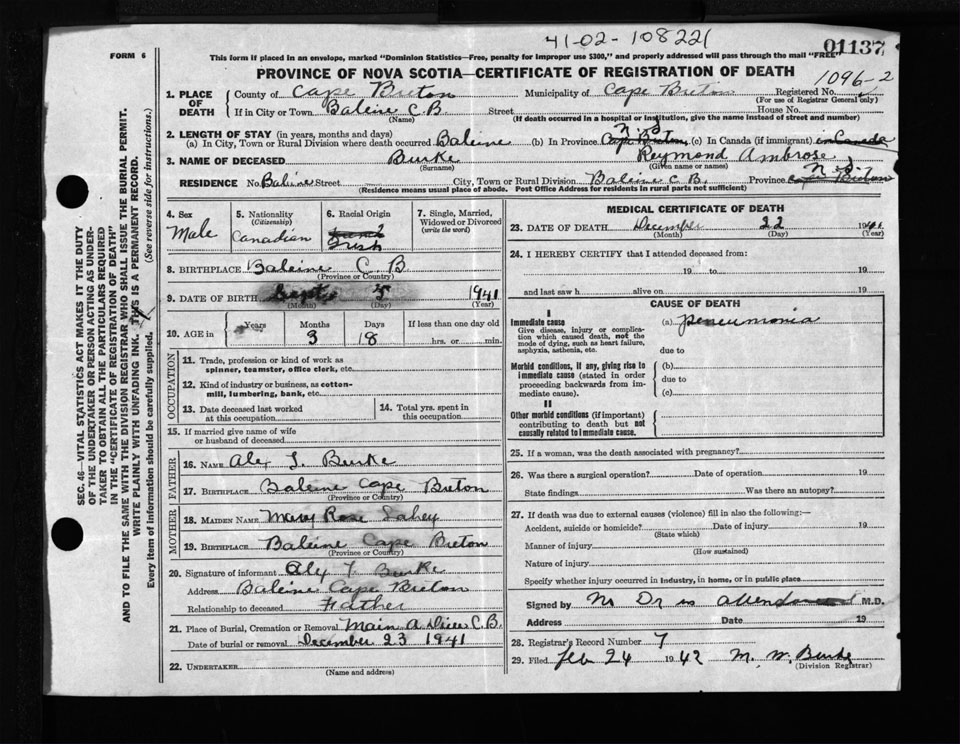 41-02-108221
FORM 6
This form if placed in an envelope, marked "Dominion Statistics—Free, penalty for improper use $300," and properly addressed will pass through the mail "FREE"
01137
PROVINCE OF NOVA SCOTIA—CERTIFICATE OF REGISTRATION OF DEATH
1096-2
1. PLACE OF DEATH
County of Cape Breton Municipality of Cape Breton Registered No.
(For use of Registrar General only)
If in City or Town Baleine C.B Street House No.
(Name) (If death occurred in a hospital or institution, give the name instead of street and number)
2. LENGTH OF STAY (in years, months and days)
(a) In City, Town or Rural Division where death occurred Baleine (b) In Province Cape Breton N S (c) In Canada (if immigrant) in Canada
3. NAME OF DECEASED Burke Reymond Ambrose
(Surname) (Given name or names)
RESIDENCE No. Baleine Street City, Town or Rural Division Baleine C B. Province Cape Breton N S
(Residence means usual place of abode. Post Office Address for residents in rural parts not sufficient)
4. Sex
Male
5. Nationality (Citizenship)
Canadian
6. Racial Origin
Irish
7. Single, Married, Widowed or Divorced (write the word)
8. BIRTHPLACE Baleine C B
(Province or Country)
9. DATE OF BIRTH Sept 1941
(Month) (Day) (Year)
10. AGE in Years Months Days If less than one day old
3 18 hrs. or min.
OCCUPATION
11. Trade, profession or kind of work as spinner, teamster, office clerk, etc.
12. Kind of industry or business, as cotton-mill, lumbering, bank, etc.
13. Date deceased last worked at this occupation
14. Total yrs. spent in this occupation
15. If married give name of wife or husband of deceased
FATHER
16. NAME Alex T. Burke
17. BIRTHPLACE Baleine Cape Breton
(Province or Country)
MOTHER
18. MAIDEN NAME Mary Rose Lahey
19. BIRTHPLACE Baleine Cape Breton
(Province or Country)
20. Signature of informant Alex T. Burke
Address Baleine Cape Breton
Relationship to deceased Father
21. Place of Burial, Cremation or Removal Main A Dieu C.B.
Date of burial or removal December 23 1941
22. UNDERTAKER
(Name and address)
MEDICAL CERTIFICATE OF DEATH
23. DATE OF DEATH December 22 1941
(Month) (Day) (Year)
24. I HEREBY CERTIFY that I attended deceased from:
19 to 19
and last saw h alive on 19
CAUSE OF DEATH
I
Immediate cause
Give disease, injury or complication which caused death, not the mode of dying, such as heart failure, asphyxia, asthenia, etc.
(a) peneumonia
due to
Morbid conditions, if any, giving rise to immediate cause (stated in order proceeding backwards from immediate cause)
(b)
due to
(c)
II
Other morbid conditions (if important) contributing to death but not causally related to immediate cause.
25. If a woman, was the death associated with pregnancy?
26. Was there a surgical operation? Date of operation 19
State findings Was there an autopsy?
27. If death was due to external causes (violence) fill in also the following:—
Accident, suicide or homicide? Date of injury 19
(State which)
Manner of injury
(How sustained)
Nature of injury
Specify whether injury occurred in industry, in home, or in public place
Signed by No Dr in attendance M.D.
Address Date 19
28. Registrar's Record Number 7
29. Filed Feb 24 1942 M. W. Burke
(Division Registrar)
SEC. 46—VITAL STATISTICS ACT MAKES IT THE DUTY
OF THE UNDERTAKER OR PERSON ACTING AS UNDER-
TAKER TO OBTAIN ALL THE PARTICULARS REQUIRED
IN THE "CERTIFICATE OF REGISTRATION OF DEATH"
AND TO FILE THE SAME WITH THE DIVISION REGISTRAR WHO SHALL ISSUE THE BURIAL PERMIT.
WRITE PLAINLY WITH UNFADING INK. THIS IS A PERMANENT RECORD.
Every item of information should be carefully supplied. (See reverse side for instructions.)